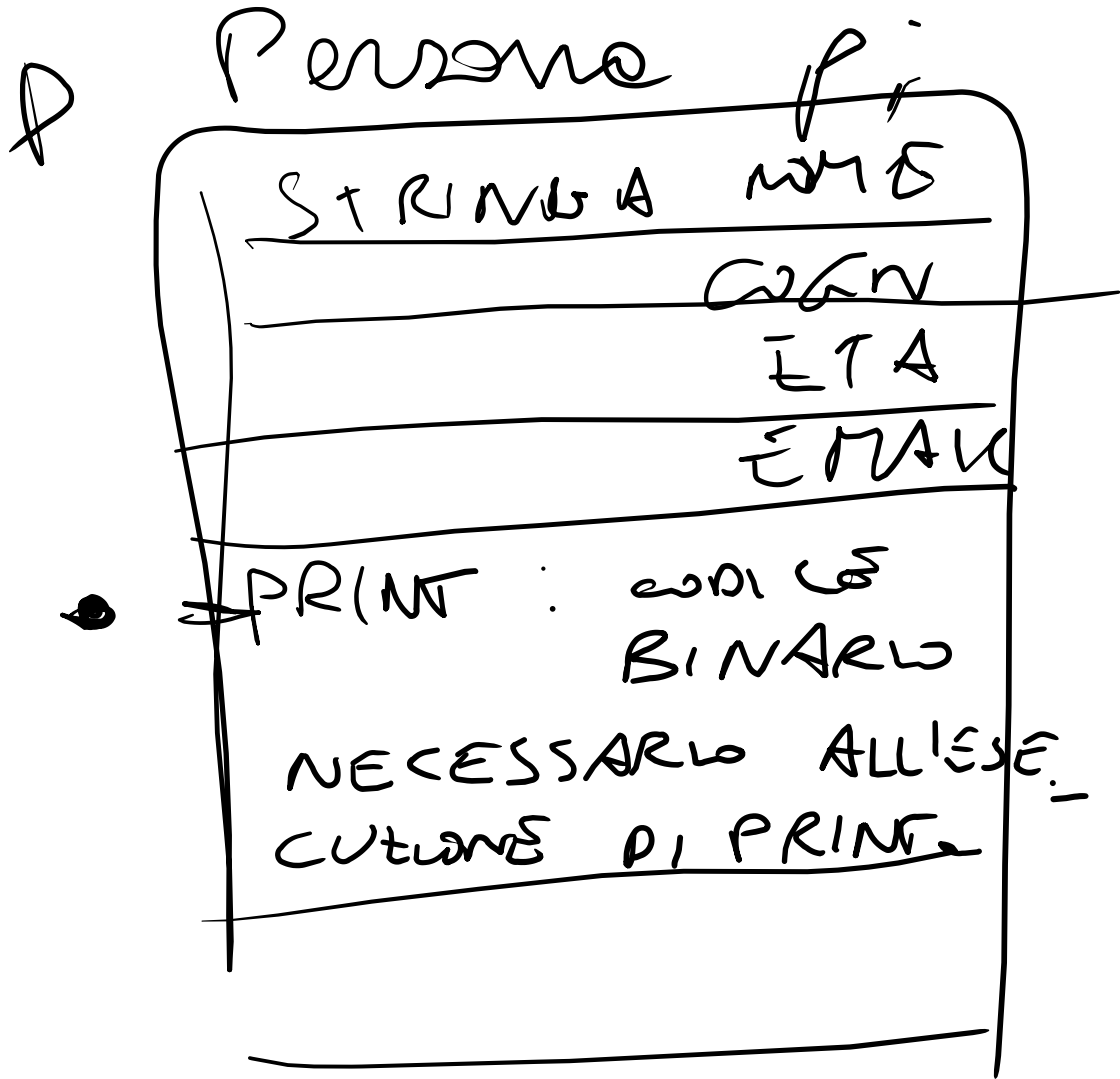 Persona p;
P
STRINGA NOME
COGN
ETA
EMAIL
PRINT : CODICE
BINARIO
NECESSARIO ALL'ESE_
CUZIONE DI PRINT.